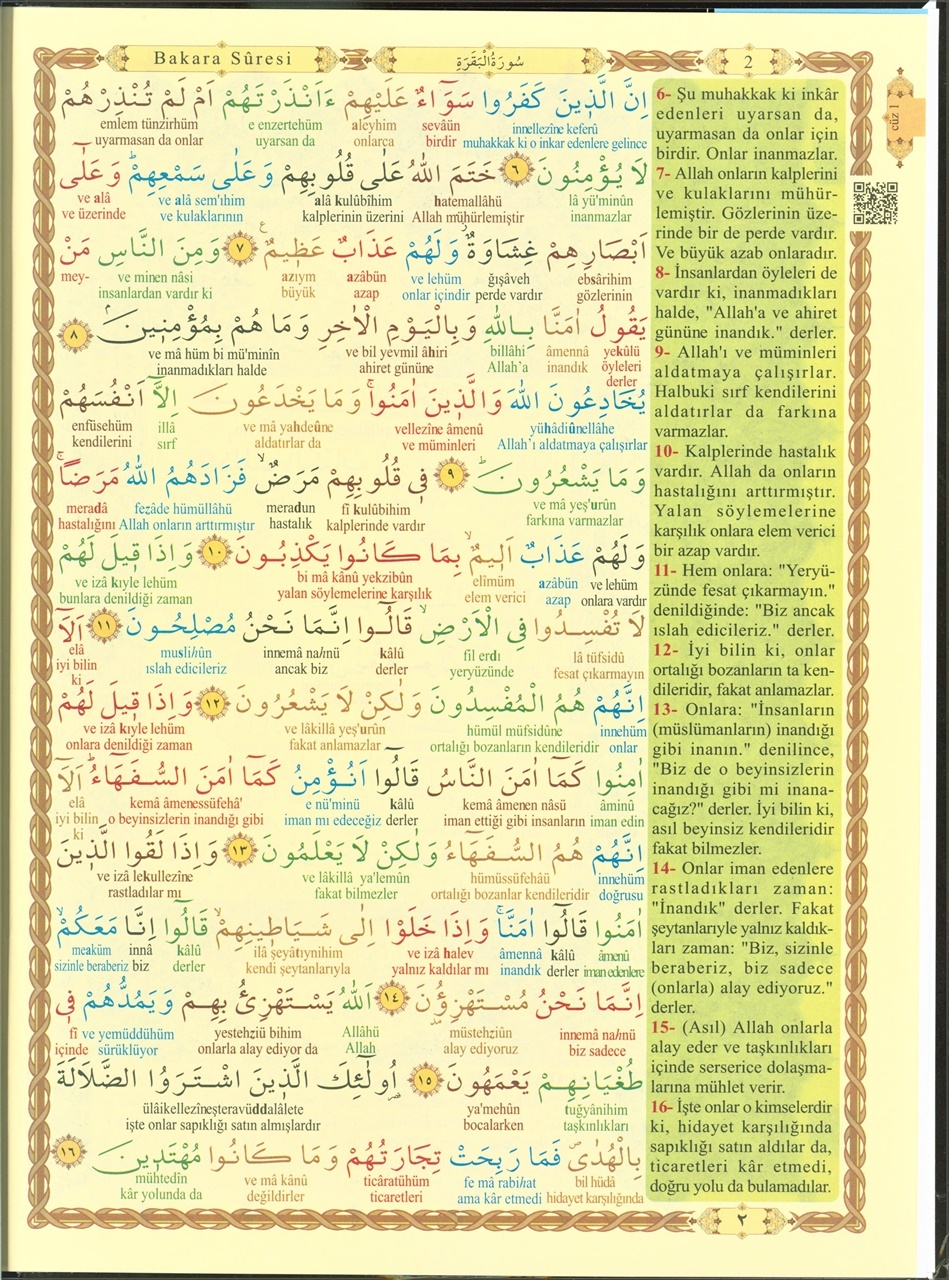 Bakara Sûresi
سُورَةُ الْبَقَرَةِ
2
cüz 1
اِنَّ الَّذ۪ينَ كَفَرُوا سَوَٓاءٌ عَلَيْهِمْ ءَاَنْذَرْتَهُمْ اَمْ لَمْ تُنْذِرْهُمْ
innellezîne keferû sevâün aleyhim e enzertehüm emlem tünzirhüm
muhakkak ki o inkar edenlere gelince birdir onlarca uyarsan da uyarmasan da onlar
لَا يُؤْمِنُونَ ﴿٦﴾ خَتَمَ اللّٰهُ عَلٰى قُلُوبِهِمْ وَعَلٰى سَمْعِهِمْۜ وَعَلٰٓى
lâ yü'minûn hatemallâhü alâ kulûbihim ve alâ sem'ihim ve alâ
inanmazlar Allah mühürlemiştir kalplerinin üzerini ve kulaklarının ve üzerinde
اَبْصَارِهِمْ غِشَاوَةٌۘ وَلَهُمْ عَذَابٌ عَظ۪يمٌ ﴿٧﴾ وَمِنَ النَّاسِ مَنْ
ebsârihim ğışâveh ve lehüm azâbün azıym ve minen nâsi mey-
gözlerinin perde vardır onlar içindir azap büyük insanlardan vardır ki
يَقُولُ اٰمَنَّا بِاللّٰهِ وَبِالْيَوْمِ الْاٰخِرِ وَمَا هُمْ بِمُؤْمِن۪ينَۢ ﴿٨﴾
yekûlü âmennâ billâhi ve bil yevmil âhiri ve mâ hüm bi mü'minîn
öyleleri derler inandık Allah'a ahiret gününe inanmadıkları halde
يُخَادِعُونَ اللّٰهَ وَالَّذ۪ينَ اٰمَنُواۚ وَمَا يَخْدَعُونَ اِلَّٓا اَنْفُسَهُمْ
yühâdiûnellâhe vellezîne âmenû ve mâ yahdeûne illâ enfüsehüm
Allah'ı aldatmaya çalışırlar ve müminleri aldatırlar da sırf kendilerini
وَمَا يَشْعُرُونَۜ ﴿٩﴾ ف۪ي قُلُوبِهِمْ مَرَضٌۙ فَزَادَهُمُ اللّٰهُ مَرَضًاۚ
ve mâ yeş'urûn fî kulûbihim meradun fezâde hümüllâhü meradâ
farkına varmazlar kalplerinde vardır hastalık Allah onların arttırmıştır hastalığını
وَلَهُمْ عَذَابٌ اَل۪يمٌۙ بِمَا كَانُوا يَكْذِبُونَ ﴿١٠﴾ وَاِذَا ق۪يلَ لَهُمْ
ve lehüm azâbün elîmüm bi mâ kânû yekzibûn ve izâ kıyle lehüm
onlara vardır azap elem verici yalan söylemelerine karşılık bunlara denildiği zaman
لَا تُفْسِدُوا فِي الْاَرْضِۙ قَالُٓوا اِنَّمَا نَحْنُ مُصْلِحُونَ ﴿١١﴾ اَلَٓا
lâ tüfsidû fil erdı kâlû innemâ nahnü muslihûn elâ
fesat çıkarmayın yeryüzünde derler ancak biz ıslah edicileriz iyi bilin ki
اِنَّهُمْ هُمُ الْمُفْسِدُونَ وَلٰكِنْ لَا يَشْعُرُونَ ﴿١٢﴾ وَاِذَا ق۪يلَ لَهُمْ
innehüm hümül müfsidûne ve lâkillâ yeş'urûn ve izâ kıyle lehüm
onlar ortalığı bozanların kendileridir fakat anlamazlar onlara denildiği zaman
اٰمِنُوا كَمَٓا اٰمَنَ النَّاسُ قَالُٓوا اَنُؤْمِنُ كَمَٓا اٰمَنَ السُّفَهَٓاءُۜ اَلَٓا
âminû kemâ âmenen nâsü kâlû e nü'minü kemâ âmenessüfehâ' elâ
iman edin iman ettiği gibi insanların derler iman mı edeceğiz o beyinsizlerin inandığı gibi iyi bilin ki
اِنَّهُمْ هُمُ السُّفَهَٓاءُ وَلٰكِنْ لَا يَعْلَمُونَ ﴿١٣﴾ وَاِذَا لَقُوا الَّذ۪ينَ
innehüm hümüssüfehâü ve lâkillâ ya'lemûn ve izâ lekullezîne
doğrusu ortalığı bozanlar kendileridir fakat bilmezler rastladılar mı
اٰمَنُوا قَالُٓوا اٰمَنَّاۚ وَاِذَا خَلَوْا اِلٰى شَيَاط۪ينِهِمْۙ قَالُٓوا اِنَّا مَعَكُمْۙ
âmenû kâlû âmennâ ve izâ halev ilâ şeyâtıynihim kâlû innâ meaküm
iman edenlere derler inandık yalnız kaldılar mı kendi şeytanlarıyla derler biz sizinle beraberiz
اِنَّمَا نَحْنُ مُسْتَهْزِؤُ۫نَ ﴿١٤﴾ اَللّٰهُ يَسْتَهْزِئُ بِهِمْ وَيَمُدُّهُمْ ف۪ي
innemâ nahnü müstehziûn Allâhü yestehziü bihim ve yemüddühüm fî
biz sadece alay ediyoruz Allah onlarla alay ediyor da sürüklüyor içinde
طُغْيَانِهِمْ يَعْمَهُونَ ﴿١٥﴾ اُو۬لٰٓئِكَ الَّذ۪ينَ اشْتَرَوُا الضَّلَالَةَ
tuğyânihim ya'mehûn ülâikellezîneşteravüddalâlete
taşkınlıkları bocalarken işte onlar sapıklığı satın almışlardır
بِالْهُدٰىۖ فَمَا رَبِحَتْ تِجَارَتُهُمْ وَمَا كَانُوا مُهْتَد۪ينَ ﴿١٦﴾
bil hüdâ fe mâ rabihat ticâratühüm ve mâ kânû mühtedîn
hidayet karşılığında ama kâr etmedi ticaretleri değildirler kâr yolunda da
6- Şu muhakkak ki inkâr
edenleri uyarsan da,
uyarmasan da onlar için
birdir. Onlar inanmazlar.
7- Allah onların kalplerini
ve kulaklarını mühür-
lemiştir. Gözlerinin üze-
rinde bir de perde vardır.
Ve büyük azab onlaradır.
8- İnsanlardan öyleleri de
vardır ki, inanmadıkları
halde, "Allah'a ve ahiret
gününe inandık." derler.
9- Allah'ı ve müminleri
aldatmaya çalışırlar.
Halbuki sırf kendilerini
aldatırlar da farkına
varmazlar.
10- Kalplerinde hastalık
vardır. Allah da onların
hastalığını arttırmıştır.
Yalan söylemelerine
karşılık onlara elem verici
bir azap vardır.
11- Hem onlara: "Yeryü-
zünde fesat çıkarmayın."
denildiğinde: "Biz ancak
ıslah edicileriz." derler.
12- İyi bilin ki, onlar
ortalığı bozanların ta ken-
dileridir, fakat anlamazlar.
13- Onlara: "İnsanların
(müslümanların) inandığı
gibi inanın." denilince,
"Biz de o beyinsizlerin
inandığı gibi mi inana-
cağız?" derler. İyi bilin ki,
asıl beyinsiz kendileridir
fakat bilmezler.
14- Onlar iman edenlere
rastladıkları zaman:
"İnandık" derler. Fakat
şeytanlarıyle yalnız kaldık-
ları zaman: "Biz, sizinle
beraberiz, biz sadece
(onlarla) alay ediyoruz."
derler.
15- (Asıl) Allah onlarla
alay eder ve taşkınlıkları
içinde serserice dolaşma-
larına mühlet verir.
16- İşte onlar o kimselerdir
ki, hidayet karşılığında
sapıklığı satın aldılar da,
ticaretleri kâr etmedi,
doğru yolu da bulamadılar.
٢